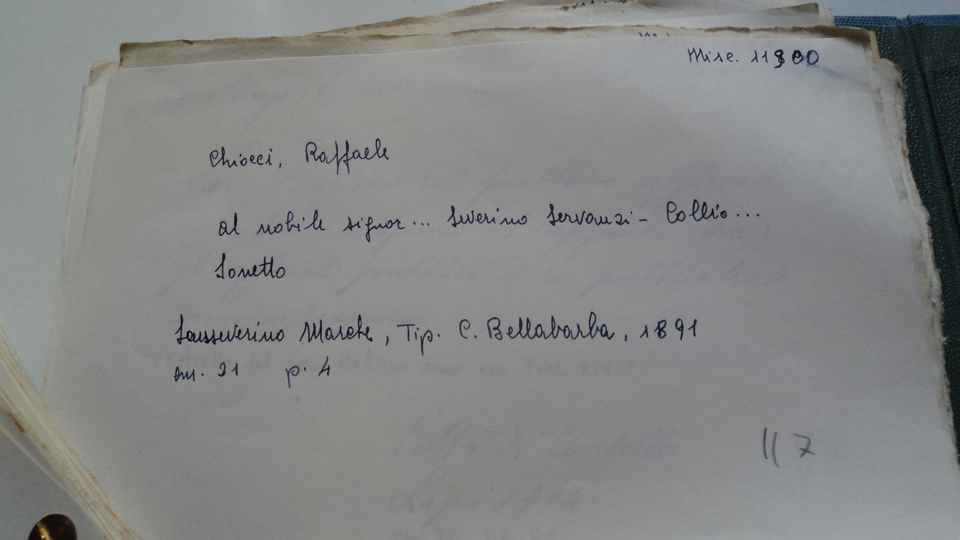 Misc. 11900
Chiocci, Raffaele
al nobile signor... Severino Servanzi-Collio...
Sonetto
Sanseverino Marche, Tip. C. Bellabarba, 1891
cm. 21 p. 4
117